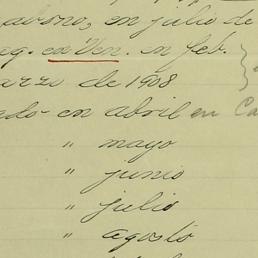 abono, en julio de
ag. en Ven. en feb.
arzo de 1908
ado en abril en Ca
" mayo
" junio
" julio
" agosto